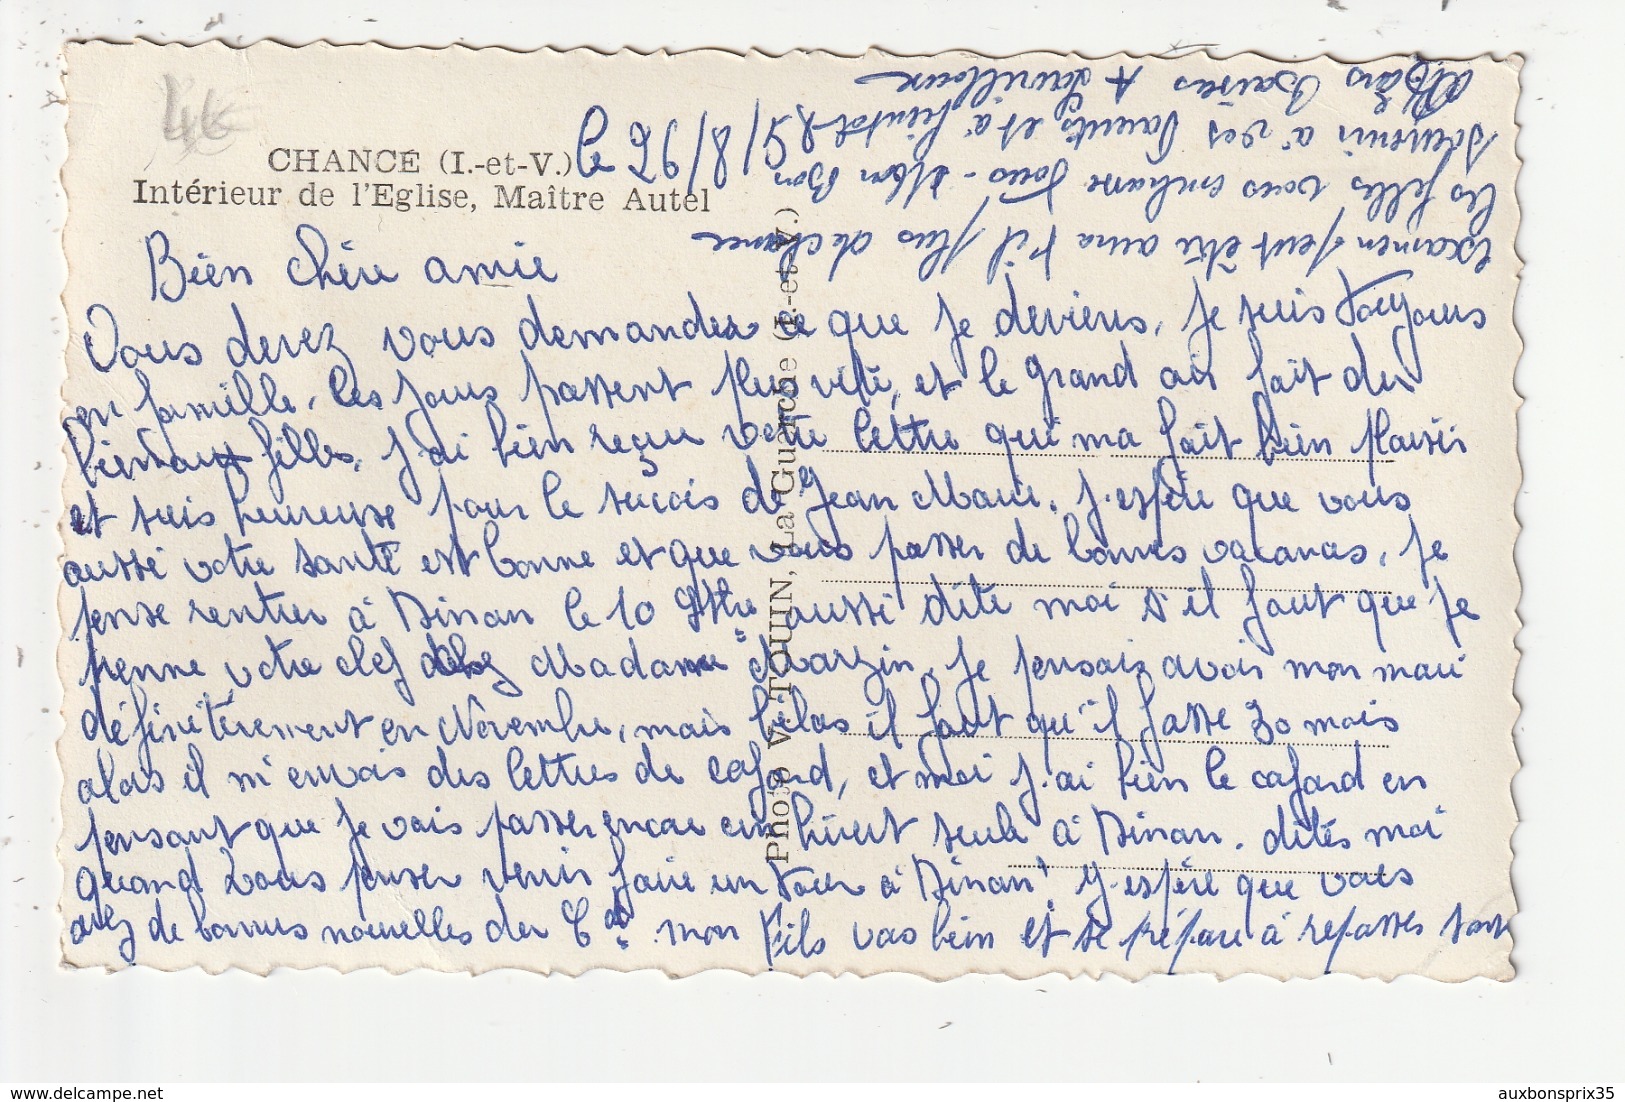 4€
CHANCÉ (I.-et-V.)
Intérieur de l'Eglise, Maître Autel
le 26/8/59
Bien chère amie
Vous devez vous demander ce que je deviens, je suis toujours
en famille, les jours passent plus vite, et le grand air fait du
bien aux filles, j'ai bien reçu votre lettre qui m'a fait bien plaisir
et suis heureuse pour le succès de Jean Marie. j'espère que vous
aussi votre santé est bonne et que vous passer de bonnes vacances, je
pense rentrer à Dinan le 10 Stbre aussi dite moi s'il faut que je
prenne votre clef chez Madame Marzin, je pensais avoir mon mari
définitivement en Novembre, mais hélas il faut qu'il fasse 30 mois
alors il m'envois des lettres de cafard, et moi j'ai bien le cafard en
pensant que je vais passer encore un hivert seule à Dinan. dites moi
quand vous penser venir faire un tour à Dinan! j'espère que vous
avez de bonnes nouvelles du Cel. mon Fils vas bien et se prépare à repasser son
examen peut être aura t'il plus de chance
les filles vous embrasse tous - Mon Bon
Souvenir à vos Parents, et à bientôt
Gros Baisers
Photo V. TOUIN, La Guerche (I.-et-V.)
auxbonsprix35